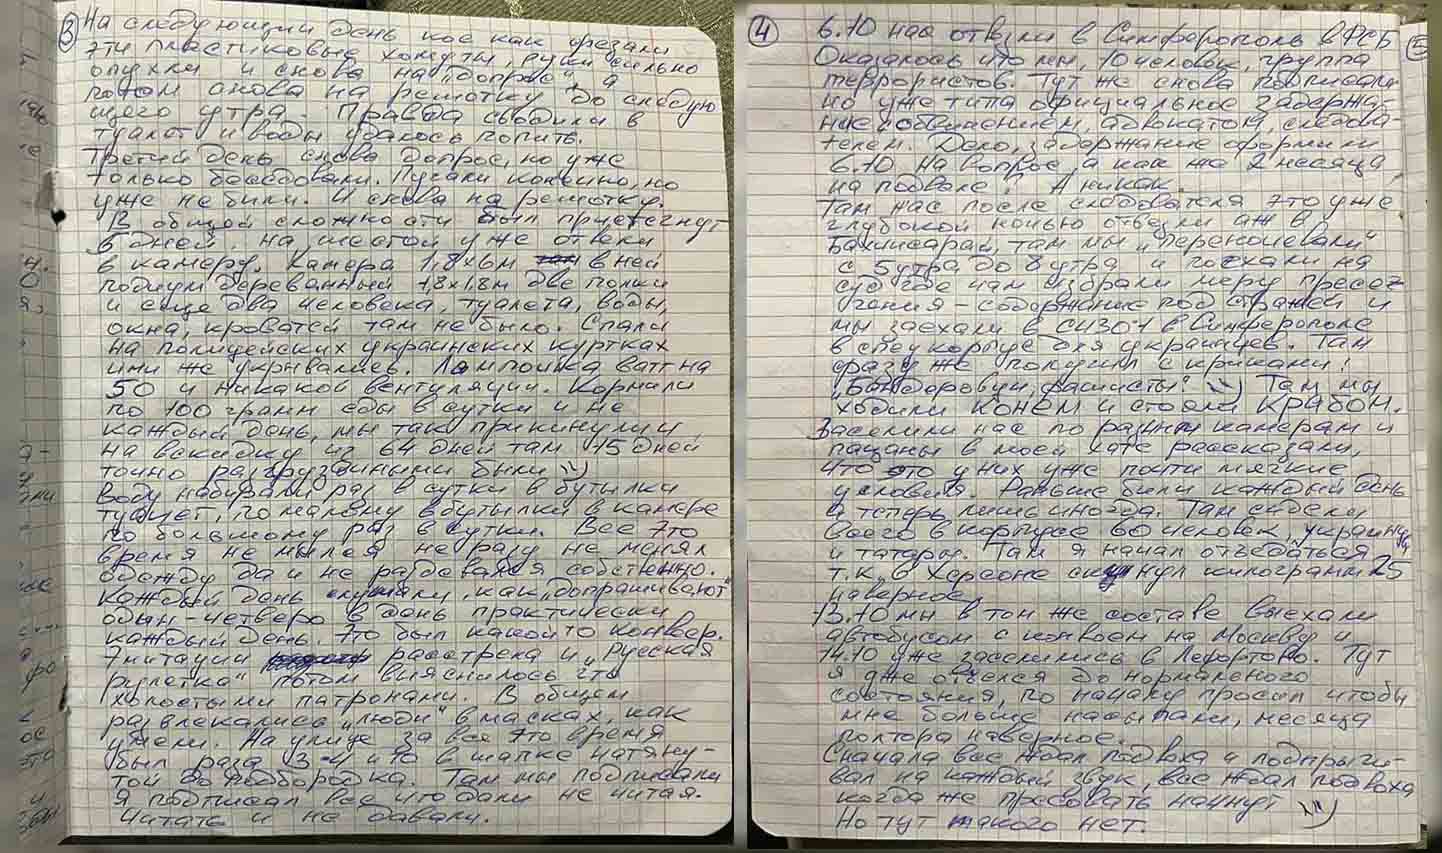 3
На следующий день кое как срезали
эти пластиковые хомуты, руки сильно
опухли и снова на „допрос", а
потом снова на решотку до следую
щего утра. Правда сводили в
туалет и воды удалось попить.
Третий день снова допрос, но уже
только беседовали. Пугали конечно, но
уже не били. И снова на решотку.
В общей сложности был пристегнут
5 дней, на шестой уже отвели
в камеру. Камера 1,8х6м в ней
подиум деревянный 1,8х1,8м две полки
и еще два человека, туалета, воды,
окна, кроватей там не было. Спали
на полицейских украинских куртках
ими же укрывались. Лампочка ватт на
50 и никакой вентуляции. Кормили
по 100 грамм еды в сутки и не
каждый день, мы так прикинули и
на вскидку из 64 дней там 15 дней
точно разгрузочными были
Воду набирали раз в сутки в бутылки
туалет, по малому в бутылки в камере
по большому раз в сутки. Все это
время не мылся не разу не менял
одежду да и не раздевался собственно.
Каждый день слушали, как „допрашивают"
один-четверо в день практически
каждый день. Это был какой то конвеер.
Эмитации расстрела и „русская
рулетка" потом выяснилось что
холостыми патронами. В общем
развлекались „люди" в масках, как
умели. На улице за все это время
был раза 3-4 и то в шапке натяну-
той до подбородка. Там мы подписали
Я подписал все что дали не читая.
Читать и не давали.
4
6.10 нас отвезли в Симферополь в ФСБ
Оказалось что мы, 10 человек, группа
террористов. Тут же снова подписали
но уже типа официальное задержа-
ние с обвинением, адвокатом, следова-
телем. Дело, задержание оформили
6.10. На вопрос а как же 2 месяца
на подвале? А никак.
Там нас после следователя это уже
глубокой ночью отвезли аж в
Бахчисарай, там мы „переночевали"
с 5 утра до 8 утра и поехали на
суд где нам избрали меру пресеч
чения - содержание под стражей и
мы заехали в СИЗО-1 в Симферополе
в спецкорпус для украинцев. Там
сразу же получили с криками:
„Бандеровцы, фашисты" Там мы
ходили конем и стояли крабом.
Заселили нас по разным камерам и
пацаны в моей хате рассказали,
что это у них уже почти мягкие
условия. Раньше били каждый день
а теперь лишь иногда. Там сидели
всего в корпусе 60 человек, украинцы
и татары. Там я начал отъедаться
т.к. в Херсоне скинул килограмм 25
наверное.
13.10 мы в том же составе выехали
автобусом с конвоем на Москву и
14.10 уже заселились в Лефортово. Тут
я уже отъелся до нормального
состояния, по началу просил чтобы
мне больше насыпали, месяца
полтора наверное.
Сначала все ждал подвоха и подпрыги-
вал на каждый звук, все ждал подвоха
когда же пресовать начнут
Но тут такого нет.
5